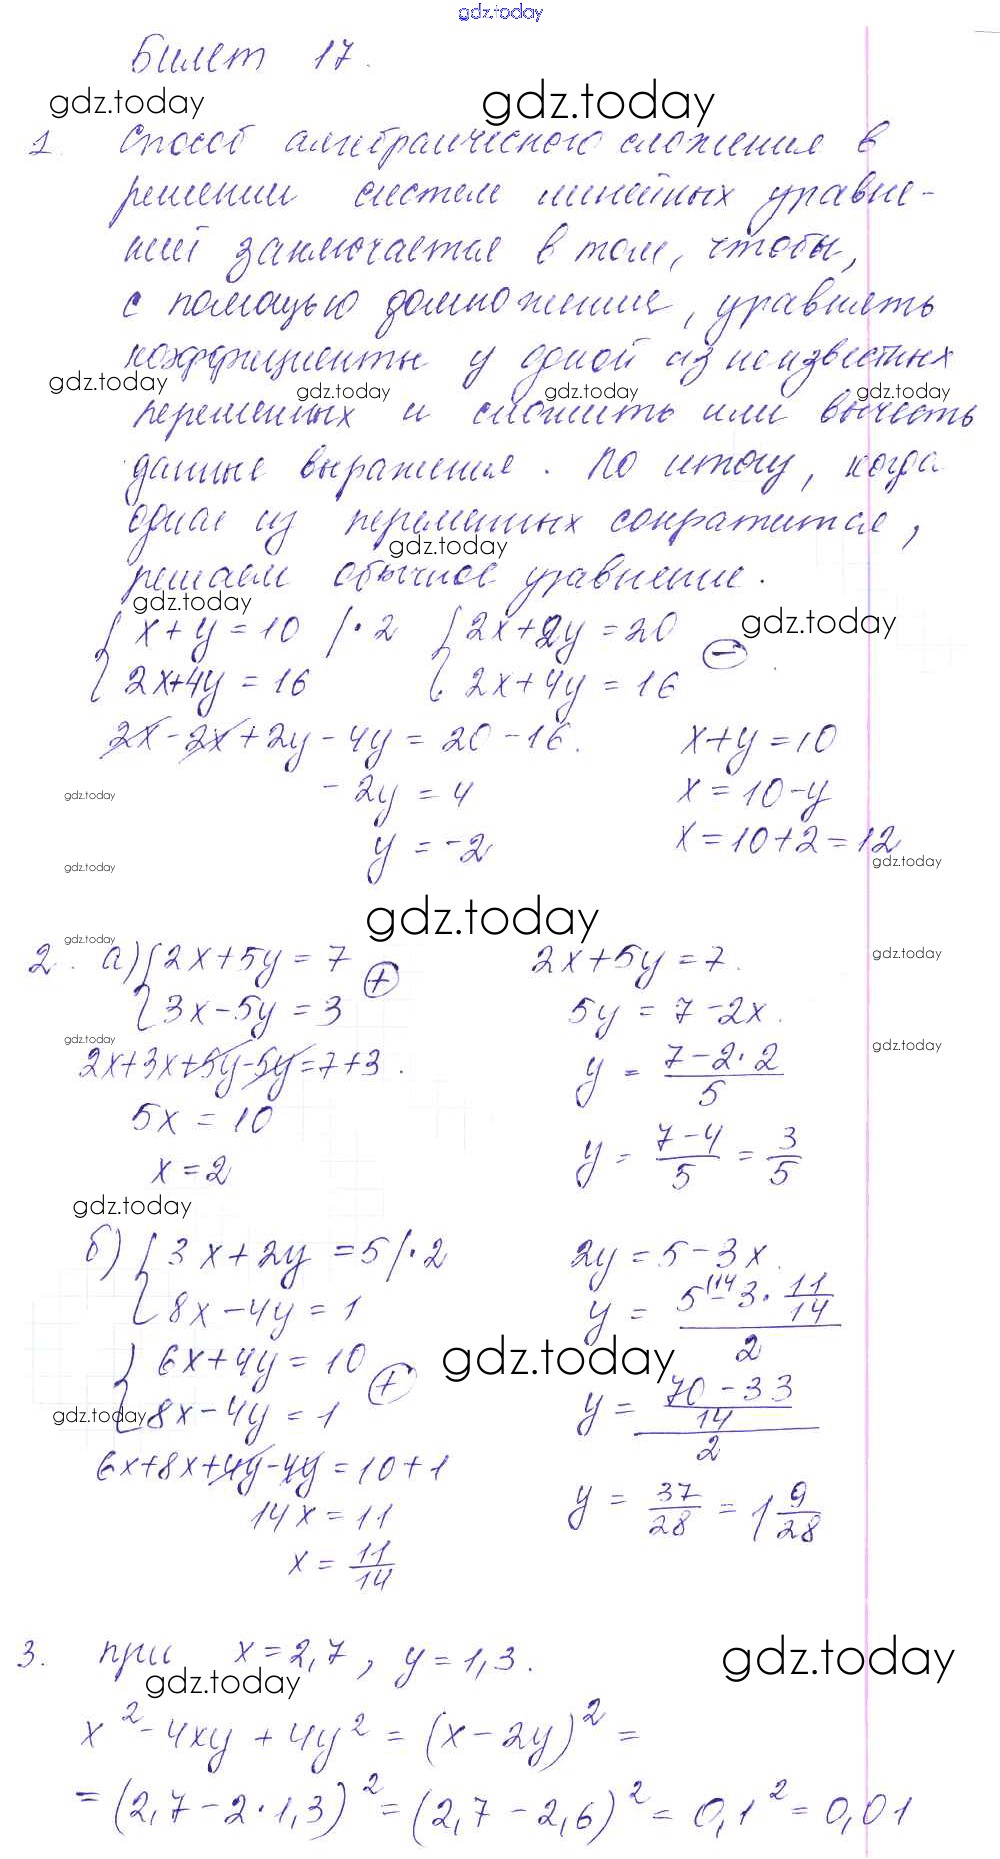 gdz.today
Билет 17.
gdz.today gdz.today
1. Способ алгебраического сложения в
решении систем линейных уравне-
ний заключается в том, чтобы,
с помощью домножения, уравнять
коэффициенты у одной из неизвестных
gdz.today gdz.today gdz.today
переменных и сложить или вычесть
данные выражения. По итогу, когда
одна из переменных сократится,
gdz.today
решаем обычное уравнение.
gdz.today gdz.today
{ x + y = 10 | · 2 { 2x + 2y = 20
{ 2x + 4y = 16 { 2x + 4y = 16 ⊖
2x - 2x + 2y - 4y = 20 - 16. x + y = 10
gdz.today - 2y = 4 x = 10 - y
y = -2 x = 10 + 2 = 12
gdz.today gdz.today
gdz.today
gdz.today gdz.today
2. а) { 2x + 5y = 7 2x + 5y = 7.
{ 3x - 5y = 3 ⊕ 5y = 7 - 2x.
gdz.today gdz.today
2x + 3x + 5y - 5y = 7 + 3. y = (7 - 2 · 2)/5
5x = 10
x = 2 y = (7 - 4)/5 = 3/5
gdz.today
б) { 3x + 2y = 5 | · 2 2y = 5 - 3x.
{ 8x - 4y = 1 y = (5^(14 - 3 · 11/14)/2
{ 6x + 4y = 10 gdz.today
{ 8x - 4y = 1 ⊕ y = ((70 - 33)/14)/2
gdz.today
6x + 8x + 4y - 4y = 10 + 1
14x = 11 y = 37/28 = 1 9/28
x = 11/14
3. при x = 2,7, y = 1,3.
gdz.today gdz.today
x² - 4xy + 4y² = (x - 2y)² =
= (2,7 - 2 · 1,3)² = (2,7 - 2,6)² = 0,1² = 0,01